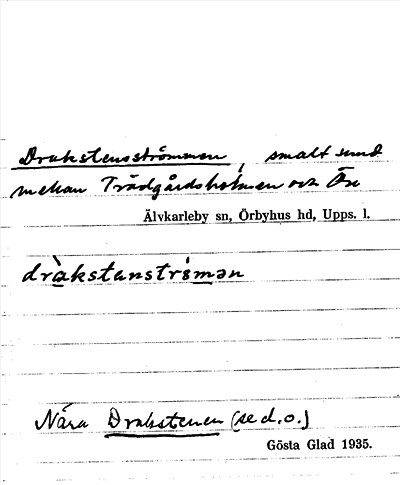 Drakstensströmmen, smalt sund
mellan Trädgårdsholmen och Ön
Älvkarleby sn, Örbyhus hd, Upps. l.
dràkstenströ́mən
Nära Drakstenen (se d.o.)
Gösta Glad 1935.